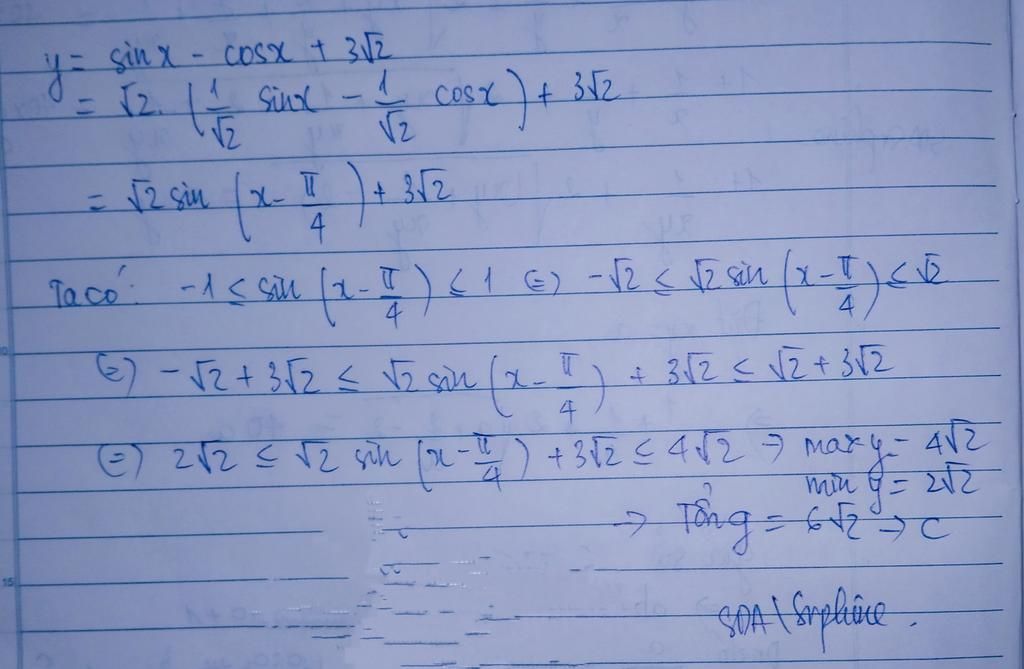 y = sinx - cosx + 3√2
= √2. (1/√2 sinx - 1/√2 cosx) + 3√2
= √2 sin (x - π/4) + 3√2
Ta có: -1 ≤ sin (x - π/4) ≤ 1 (=) -√2 ≤ √2 sin (x - π/4) ≤ √2
(=) -√2 + 3√2 ≤ √2 sin (x - π/4) + 3√2 ≤ √2 + 3√2
(=) 2√2 ≤ √2 sin (x - π/4) + 3√2 ≤ 4√2 → max y = 4√2
min y = 2√2
→ Tổng = 6√2 → C